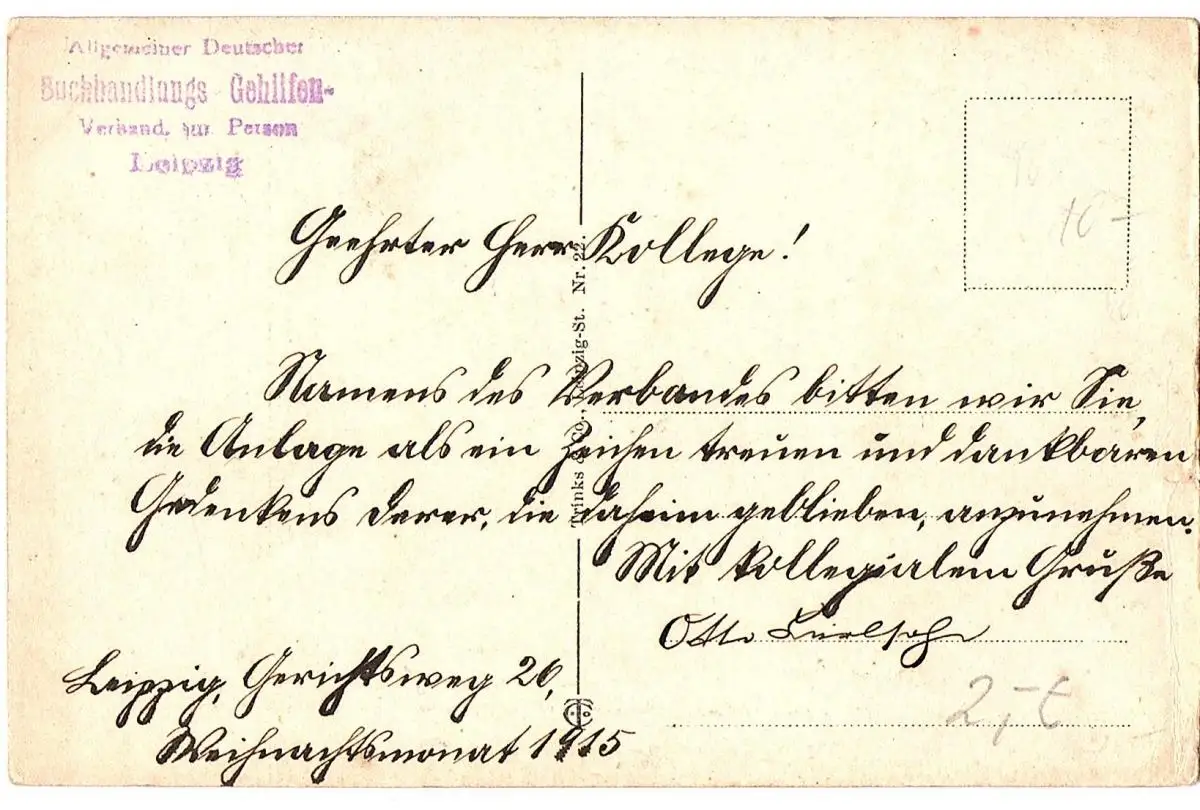 Allgemeiner Deutscher
Buchhandlungs Gehilfen-
Verband, zur Person
Leipzig
10-
Geehrter Herr Kollege!
Namens des Verbandes bitten wir Sie,
die Anlage als ein Zeichen treuen und dankbaren
Gedenkens derer, die daheim geblieben, anzunehmen.
Mit kollegialem Gruße
Otto
Leipzig, Gerichtsweg 26,
Weihnachtsmonat 1915
2,- €
Trinks & Co., Leipzig-St. Nr. 22.